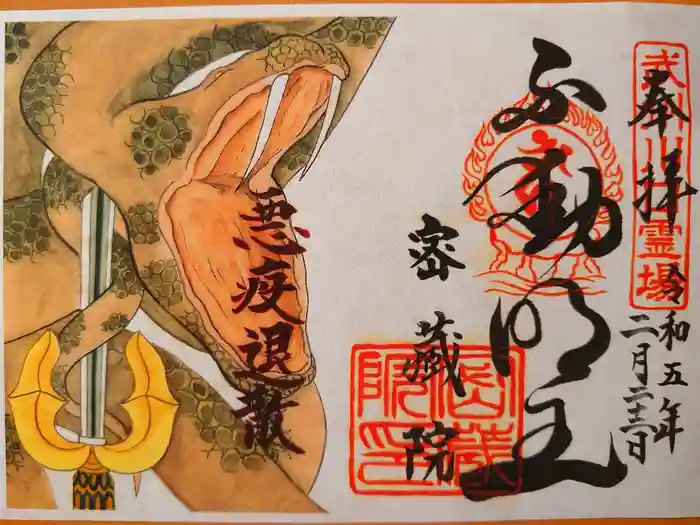 奉拝
令和五年
二月二十三日
不動明王
密蔵院
密蔵院印
悪疫退散